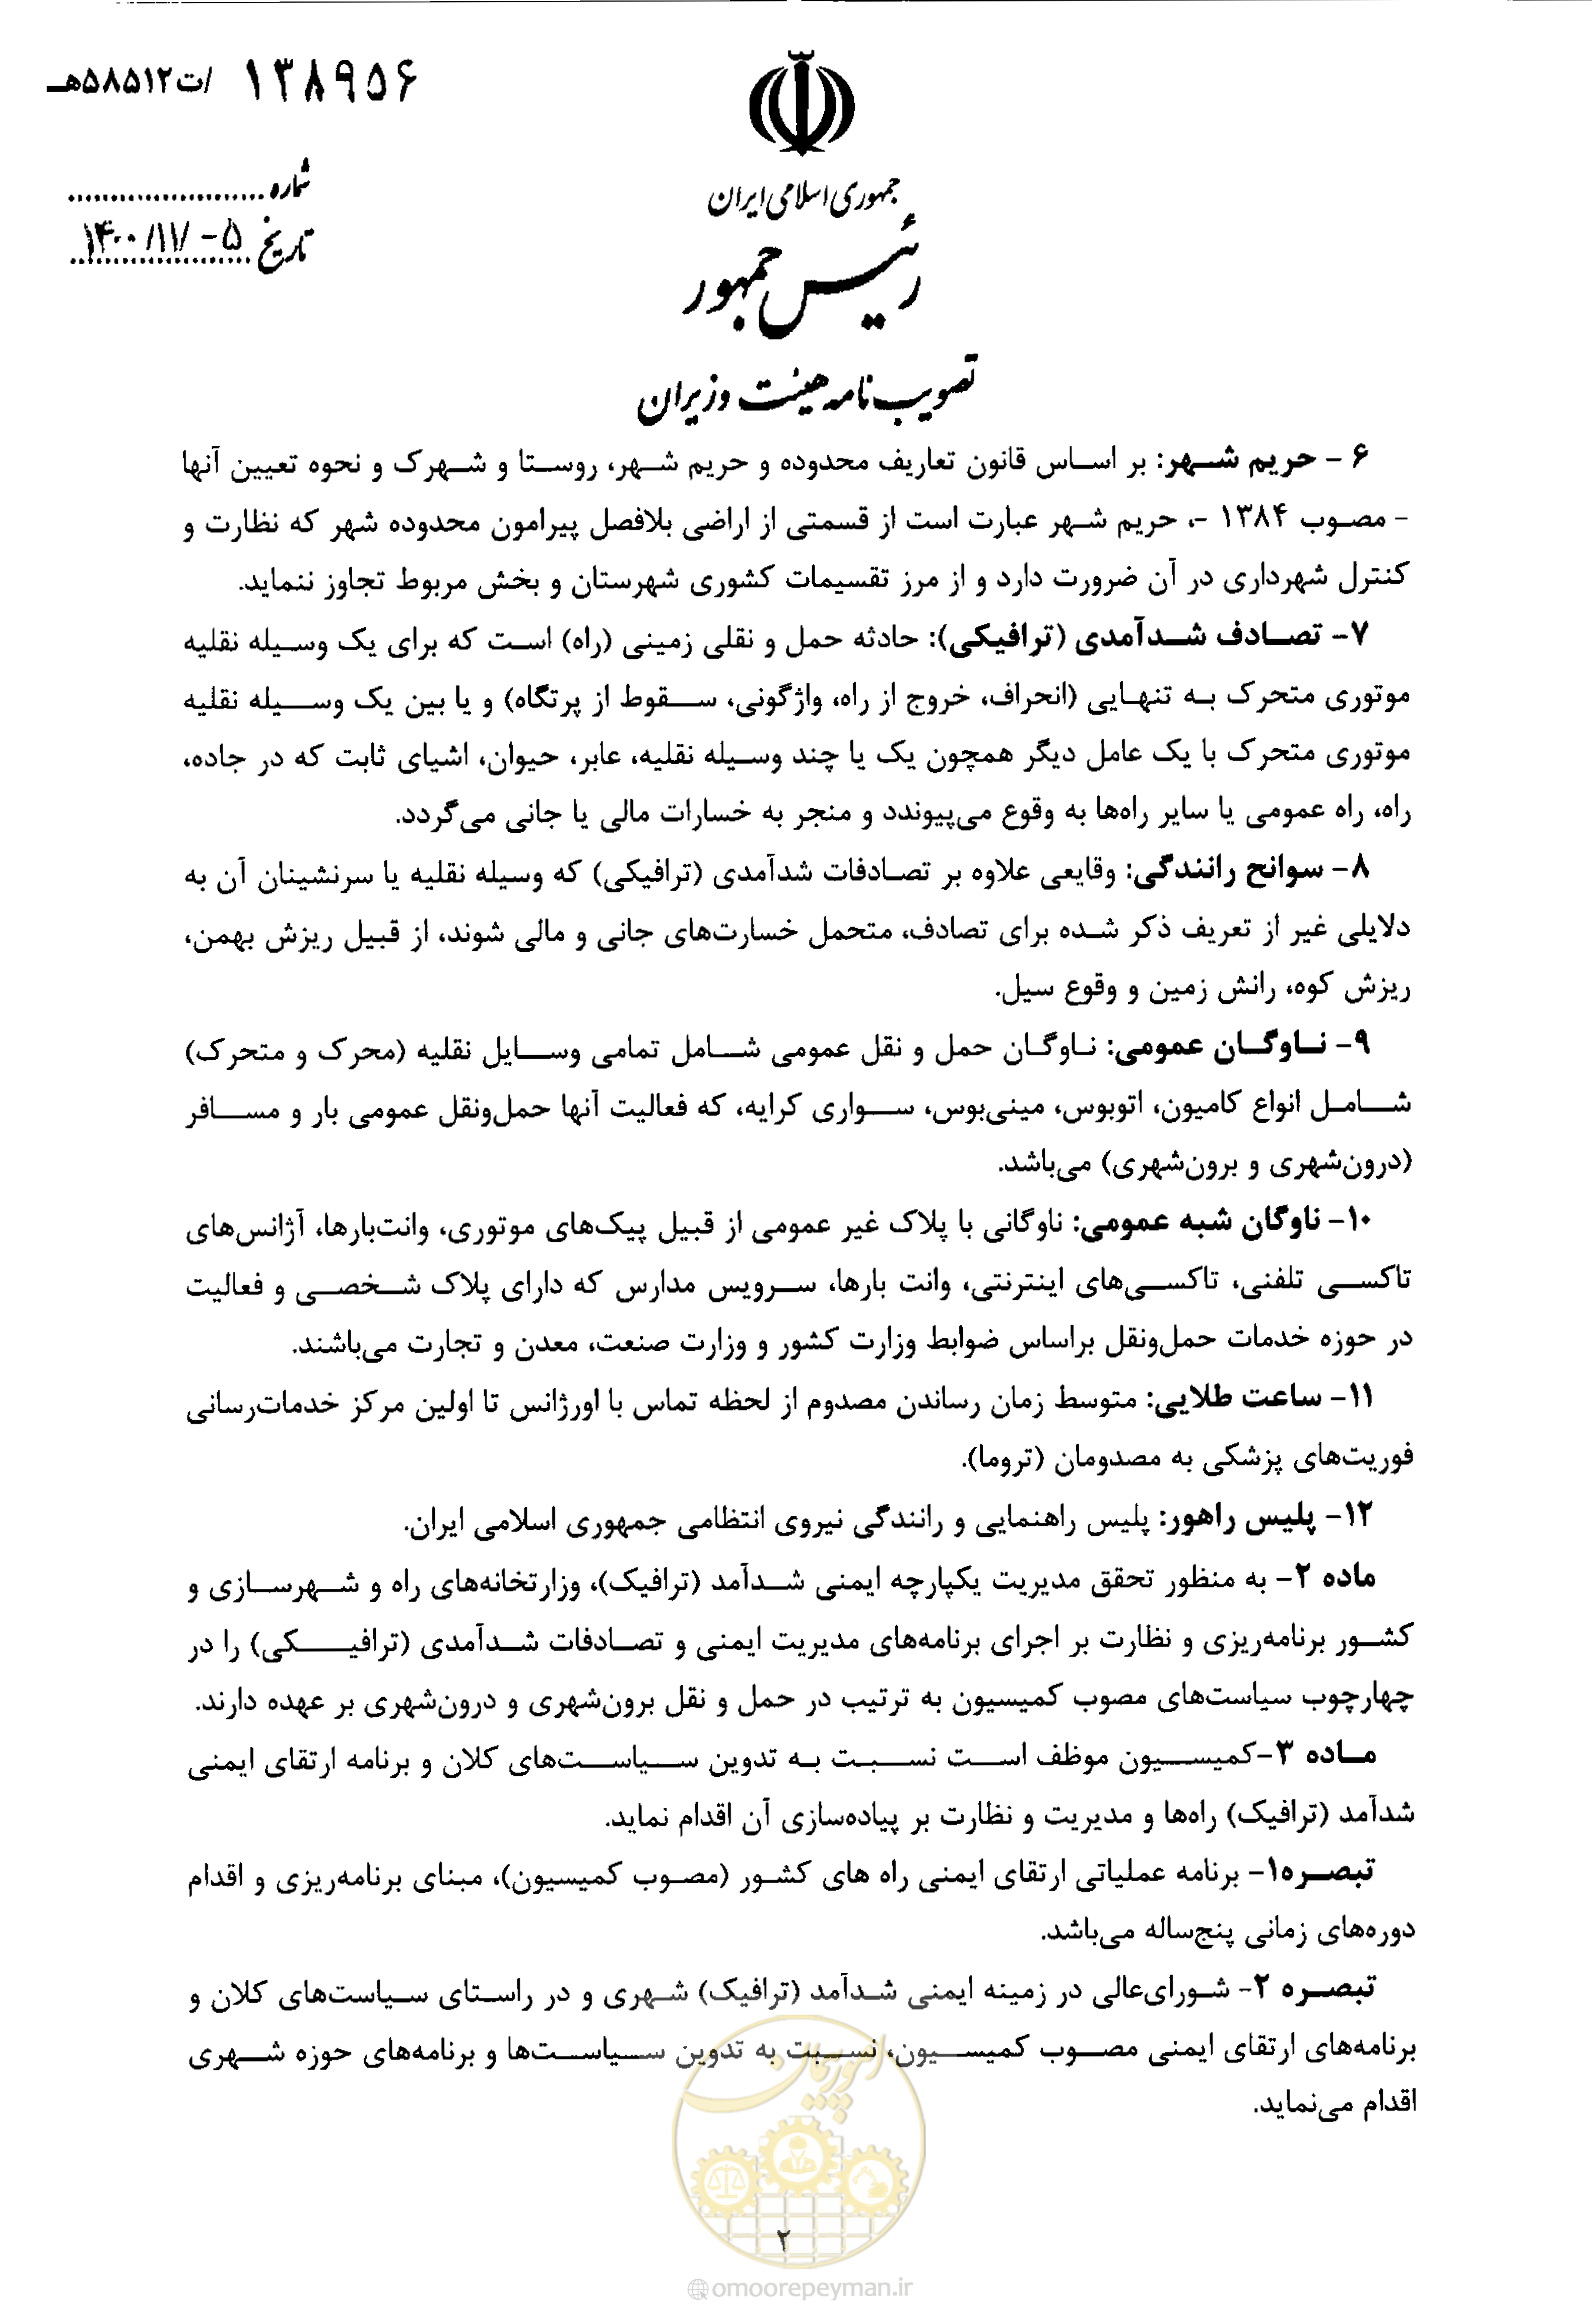 ۱۳۸۹۵۶ /ت۵۸۵۱۲هـ
شماره
تاریخ ۱۴۰۰/۱۱/-۵
جمهوری اسلامی ایران
رئیس جمهور
تصویب نامه هیئت وزیران
۶ - حریم شهر: بر اساس قانون تعاریف محدوده و حریم شهر، روستا و شهرک و نحوه تعیین آنها
- مصوب ۱۳۸۴ -، حریم شهر عبارت است از قسمتی از اراضی بلافصل پیرامون محدوده شهر که نظارت و
کنترل شهرداری در آن ضرورت دارد و از مرز تقسیمات کشوری شهرستان و بخش مربوط تجاوز ننماید.
۷- تصادف شدآمدی (ترافیکی): حادثه حمل و نقلی زمینی (راه) است که برای یک وسیله نقلیه
موتوری متحرک به تنهایی (انحراف، خروج از راه، واژگونی، سقوط از پرتگاه) و یا بین یک وسیله نقلیه
موتوری متحرک با یک عامل دیگر همچون یک یا چند وسیله نقلیه، عابر، حیوان، اشیای ثابت که در جاده،
راه، راه عمومی یا سایر راه‌ها به وقوع می‌پیوندد و منجر به خسارات مالی یا جانی می‌گردد.
۸- سوانح رانندگی: وقایعی علاوه بر تصادفات شدآمدی (ترافیکی) که وسیله نقلیه یا سرنشینان آن به
دلایلی غیر از تعریف ذکر شده برای تصادف، متحمل خسارت‌های جانی و مالی شوند، از قبیل ریزش بهمن،
ریزش کوه، رانش زمین و وقوع سیل.
۹- ناوگان عمومی: ناوگان حمل و نقل عمومی شامل تمامی وسایل نقلیه (محرک و متحرک)
شامل انواع کامیون، اتوبوس، مینی‌بوس، سواری کرایه، که فعالیت آنها حمل‌ونقل عمومی بار و مسافر
(درون‌شهری و برون‌شهری) می‌باشد.
۱۰- ناوگان شبه عمومی: ناوگانی با پلاک غیر عمومی از قبیل پیک‌های موتوری، وانت‌بارها، آژانس‌های
تاکسی تلفنی، تاکسی‌های اینترنتی، وانت بارها، سرویس مدارس که دارای پلاک شخصی و فعالیت
در حوزه خدمات حمل‌ونقل براساس ضوابط وزارت کشور و وزارت صنعت، معدن و تجارت می‌باشند.
۱۱- ساعت طلایی: متوسط زمان رساندن مصدوم از لحظه تماس با اورژانس تا اولین مرکز خدمات‌رسانی
فوریت‌های پزشکی به مصدومان (تروما).
۱۲- پلیس راهور: پلیس راهنمایی و رانندگی نیروی انتظامی جمهوری اسلامی ایران.
ماده ۲- به منظور تحقق مدیریت یکپارچه ایمنی شدآمد (ترافیک)، وزارتخانه‌های راه و شهرسازی و
کشور برنامه‌ریزی و نظارت بر اجرای برنامه‌های مدیریت ایمنی و تصادفات شدآمدی (ترافیکی) را در
چهارچوب سیاست‌های مصوب کمیسیون به ترتیب در حمل و نقل برون‌شهری و درون‌شهری بر عهده دارند.
ماده ۳-کمیسیون موظف است نسبت به تدوین سیاست‌های کلان و برنامه ارتقای ایمنی
شدآمد (ترافیک) راه‌ها و مدیریت و نظارت بر پیاده‌سازی آن اقدام نماید.
تبصره۱- برنامه عملیاتی ارتقای ایمنی راه های کشور (مصوب کمیسیون)، مبنای برنامه‌ریزی و اقدام
دوره‌های زمانی پنج‌ساله می‌باشد.
تبصره ۲- شورای‌عالی در زمینه ایمنی شدآمد (ترافیک) شهری و در راستای سیاست‌های کلان و
برنامه‌های ارتقای ایمنی مصوب کمیسیون، نسبت به تدوین سیاست‌ها و برنامه‌های حوزه شهری
اقدام می‌نماید.
امور پیمان
۲
omoorepeyman.ir